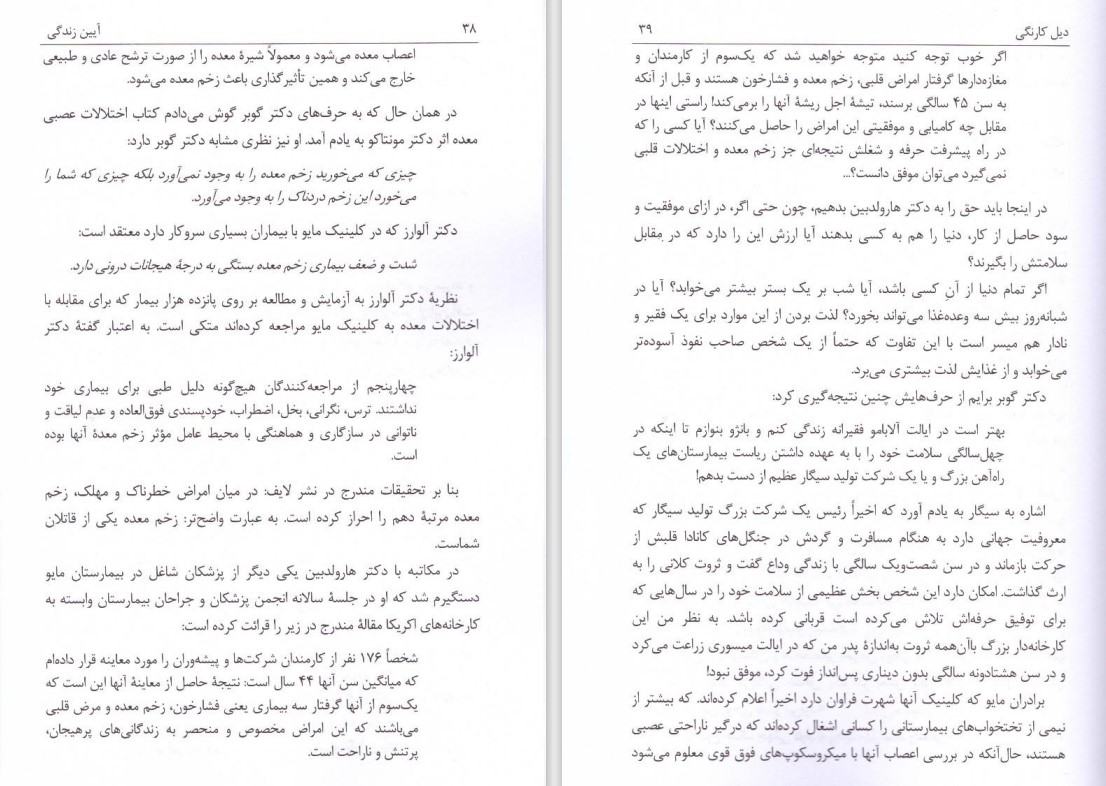 ۳۸ آیین زندگی
اعصاب معده می‌شود و معمولاً شیرهٔ معده را از صورت ترشح عادی و طبیعی
خارج می‌کند و همین تأثیرگذاری باعث زخم معده می‌شود.
در همان حال که به حرف‌های دکتر گوبر گوش می‌دادم کتاب اختلالات عصبی
معده اثر دکتر مونتاکو به یادم آمد. او نیز نظری مشابه دکتر گوبر دارد:
چیزی که می‌خورید زخم معده را به وجود نمی‌آورد بلکه چیزی که شما را
می‌خورد این زخم دردناک را به وجود می‌آورد.
دکتر آلوارز که در کلینیک مایو با بیماران بسیاری سروکار دارد معتقد است:
شدت و ضعف بیماری زخم معده بستگی به درجهٔ هیجانات درونی دارد.
نظریهٔ دکتر آلوارز به آزمایش و مطالعه بر روی پانزده هزار بیمار که برای مقابله با
اختلالات معده به کلینیک مایو مراجعه کرده‌اند متکی است. به اعتبار گفتهٔ دکتر
آلوارز:
چهارپنجم از مراجعه‌کنندگان هیچ‌گونه دلیل طبی برای بیماری خود
نداشتند. ترس، نگرانی، بخل، اضطراب، خودپسندی فوق‌العاده و عدم لیاقت و
ناتوانی در سازگاری و هماهنگی با محیط عامل مؤثر زخم معدهٔ آنها بوده
است.
بنا بر تحقیقات مندرج در نشر لایف: در میان امراض خطرناک و مهلک، زخم
معده مرتبهٔ دهم را احراز کرده است. به عبارت واضح‌تر: زخم معده یکی از قاتلان
شماست.
در مکاتبه با دکتر هارولدبین یکی دیگر از پزشکان شاغل در بیمارستان مایو
دستگیرم شد که او در جلسهٔ سالانه انجمن پزشکان و جراحان بیمارستان وابسته به
کارخانه‌های اکریکا مقالهٔ مندرج در زیر را قرائت کرده است:
شخصاً ۱۷۶ نفر از کارمندان شرکت‌ها و پیشه‌وران را مورد معاینه قرار داده‌ام
که میانگین سن آنها ۴۴ سال است: نتیجهٔ حاصل از معاینهٔ آنها این است که
یک‌سوم از آنها گرفتار سه بیماری یعنی فشارخون، زخم معده و مرض قلبی
می‌باشند که این امراض مخصوص و منحصر به زندگانی‌های پرهیجان،
پرتنش و ناراحت است.
دیل کارنگی ۳۹
اگر خوب توجه کنید متوجه خواهید شد که یک‌سوم از کارمندان و
مغازه‌دارها گرفتار امراض قلبی، زخم معده و فشارخون هستند و قبل از آنکه
به سن ۴۵ سالگی برسند، تیشهٔ اجل ریشهٔ آنها را برمی‌کند! راستی اینها در
مقابل چه کامیابی و موفقیتی این امراض را حاصل می‌کنند؟ آیا کسی را که
در راه پیشرفت حرفه و شغلش نتیجه‌ای جز زخم معده و اختلالات قلبی
نمی‌گیرد می‌توان موفق دانست؟...
در اینجا باید حق را به دکتر هارولدبین بدهیم، چون حتی اگر، در ازای موفقیت و
سود حاصل از کار، دنیا را هم به کسی بدهند آیا ارزش این را دارد که در مقابل
سلامتش را بگیرند؟
اگر تمام دنیا از آنِ کسی باشد، آیا شب بر یک بستر بیشتر می‌خوابد؟ آیا در
شبانه‌روز بیش سه وعده‌غذا می‌تواند بخورد؟ لذت بردن از این موارد برای یک فقیر و
نادار هم میسر است با این تفاوت که حتماً از یک شخص صاحب نفوذ آسوده‌تر
می‌خوابد و از غذایش لذت بیشتری می‌برد.
دکتر گوبر برایم از حرف‌هایش چنین نتیجه‌گیری کرد:
بهتر است در ایالت آلابامو فقیرانه زندگی کنم و بانژو بنوازم تا اینکه در
چهل‌سالگی سلامت خود را با به عهده داشتن ریاست بیمارستان‌های یک
راه‌آهن بزرگ و یا یک شرکت تولید سیگار عظیم از دست بدهم!
اشاره به سیگار به یادم آورد که اخیراً رئیس یک شرکت بزرگ تولید سیگار که
معروفیت جهانی دارد به هنگام مسافرت و گردش در جنگل‌های کانادا قلبش از
حرکت بازماند و در سن شصت‌ویک سالگی با زندگی وداع گفت و ثروت کلانی را به
ارث گذاشت. امکان دارد این شخص بخش عظیمی از سلامت خود را در سال‌هایی که
برای توفیق حرفه‌اش تلاش می‌کرده است قربانی کرده باشد. به نظر من این
کارخانه‌دار بزرگ باآن‌همه ثروت به‌اندازهٔ پدر من که در ایالت میسوری زراعت می‌کرد
و در سن هشتادونه سالگی بدون دیناری پس‌انداز فوت کرد، موفق نبود!
برادران مایو که کلینیک آنها شهرت فراوان دارد اخیراً اعلام کرده‌اند. که بیشتر از
نیمی از تختخواب‌های بیمارستانی را کسانی اشغال کرده‌اند که درگیر ناراحتی عصبی
هستند، حال‌آنکه در بررسی اعصاب آنها با میکروسکوپ‌های فوق قوی معلوم می‌شود